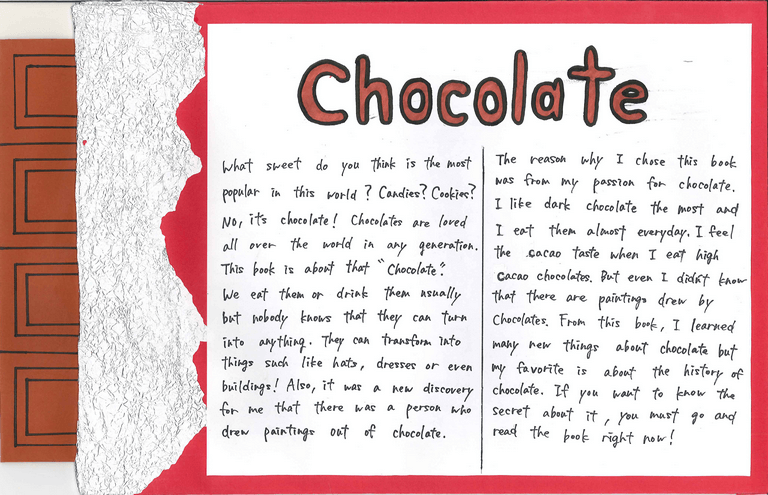 Chocolate
What sweet do you think is the most
popular in this world? Candies? Cookies?
No, it's chocolate! Chocolates are loved
all over the world in any generation.
This book is about that "Chocolate".
We eat them or drink them usually
but nobody knows that they can turn
into anything. They can transform into
things such like hats, dresses or even
buildings! Also, it was a new discovery
for me that there was a person who
drew paintings out of chocolate.
The reason why I chose this book
was from my passion for chocolate.
I like dark chocolate the most and
I eat them almost everyday. I feel
the cacao taste when I eat high
cacao chocolates. But even I didn't know
that there are paintings drew by
Chocolates. From this book, I learned
many new things about chocolate but
my favorite is about the history of
chocolate. If you want to know the
secret about it, you must go and
read the book right now!